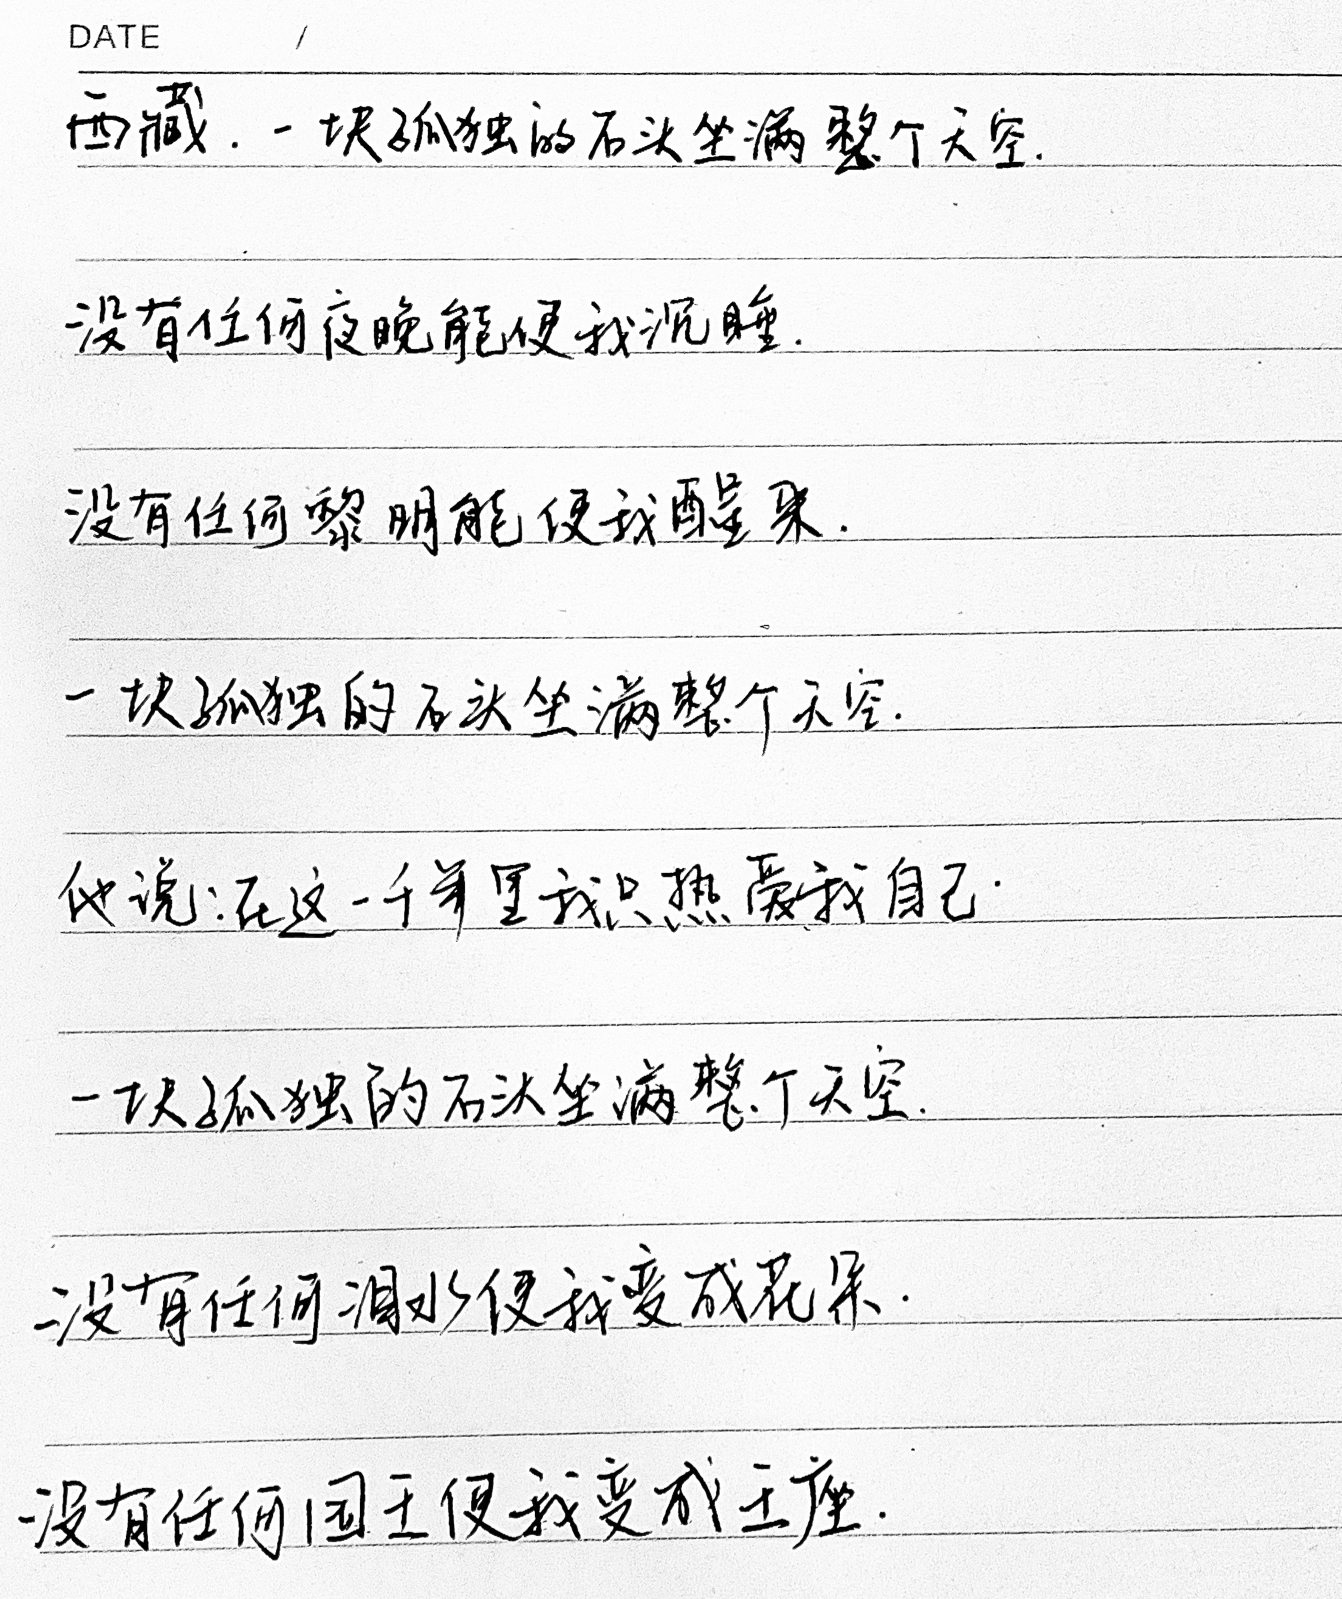 DATE /
西藏.一块孤独的石头坐满整个天空.
没有任何夜晚能使我沉睡.
没有任何黎明能使我醒来.
一块孤独的石头坐满整个天空.
他说:在这一千年里我只热爱我自己.
一块孤独的石头坐满整个天空.
没有任何泪水使我变成花朵.
没有任何国王使我变成王座.